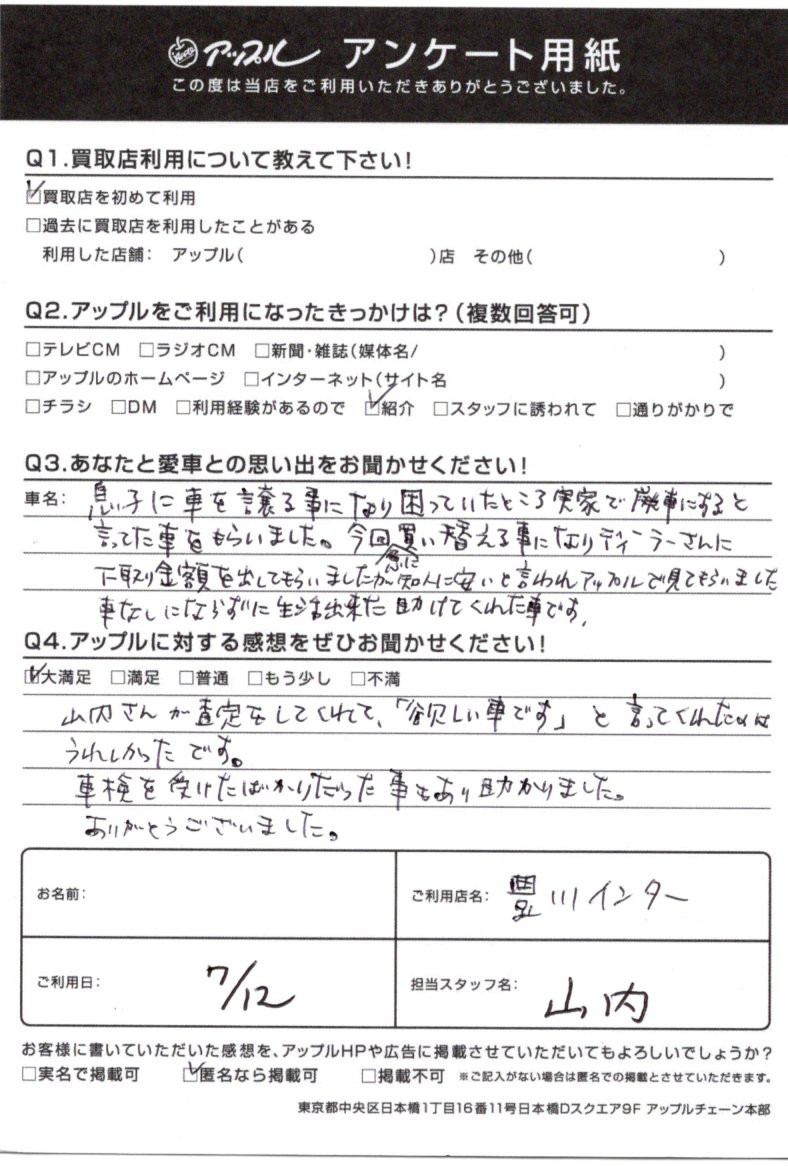 アップル アンケート用紙
この度は当店をご利用いただきありがとうございました。
Q1.買取店利用について教えて下さい!
☑買取店を初めて利用
□過去に買取店を利用したことがある
利用した店舗: アップル( )店 その他( )
Q2.アップルをご利用になったきっかけは?(複数回答可)
□テレビCM □ラジオCM □新聞・雑誌(媒体名/ )
□アップルのホームページ □インターネット(サイト名 )
□チラシ □DM □利用経験があるので ☑紹介 □スタッフに誘われて □通りがかりで
Q3.あなたと愛車との思い出をお聞かせください!
車名: 息子に車を譲る事になり困っていたところ実家で廃車にすると
言ってた車をもらいました。今回買い替える事になりディーラーさんに
下取り金額を出してもらいましたが急に知人に安いと言われアップルで見てもらいました
車なしにならずに生活出来た助けてくれた車です。
Q4.アップルに対する感想をぜひお聞かせください!
☑大満足 □満足 □普通 □もう少し □不満
山内さんが査定をしてくれて、「欲しい車です」と言ってくれたのは
うれしかったです。
車検を受けたばかりだった事もあり助かりました。
ありがとうございました。
お名前:
ご利用店名: 豊川インター
ご利用日: 7/12
担当スタッフ名: 山内
お客様に書いていただいた感想を、アップルHPや広告に掲載させていただいてもよろしいでしょうか?
□実名で掲載可 ☑匿名なら掲載可 □掲載不可 ※ご記入がない場合は匿名での掲載とさせていただきます。
東京都中央区日本橋1丁目16番11号日本橋Dスクエア9F アップルチェーン本部